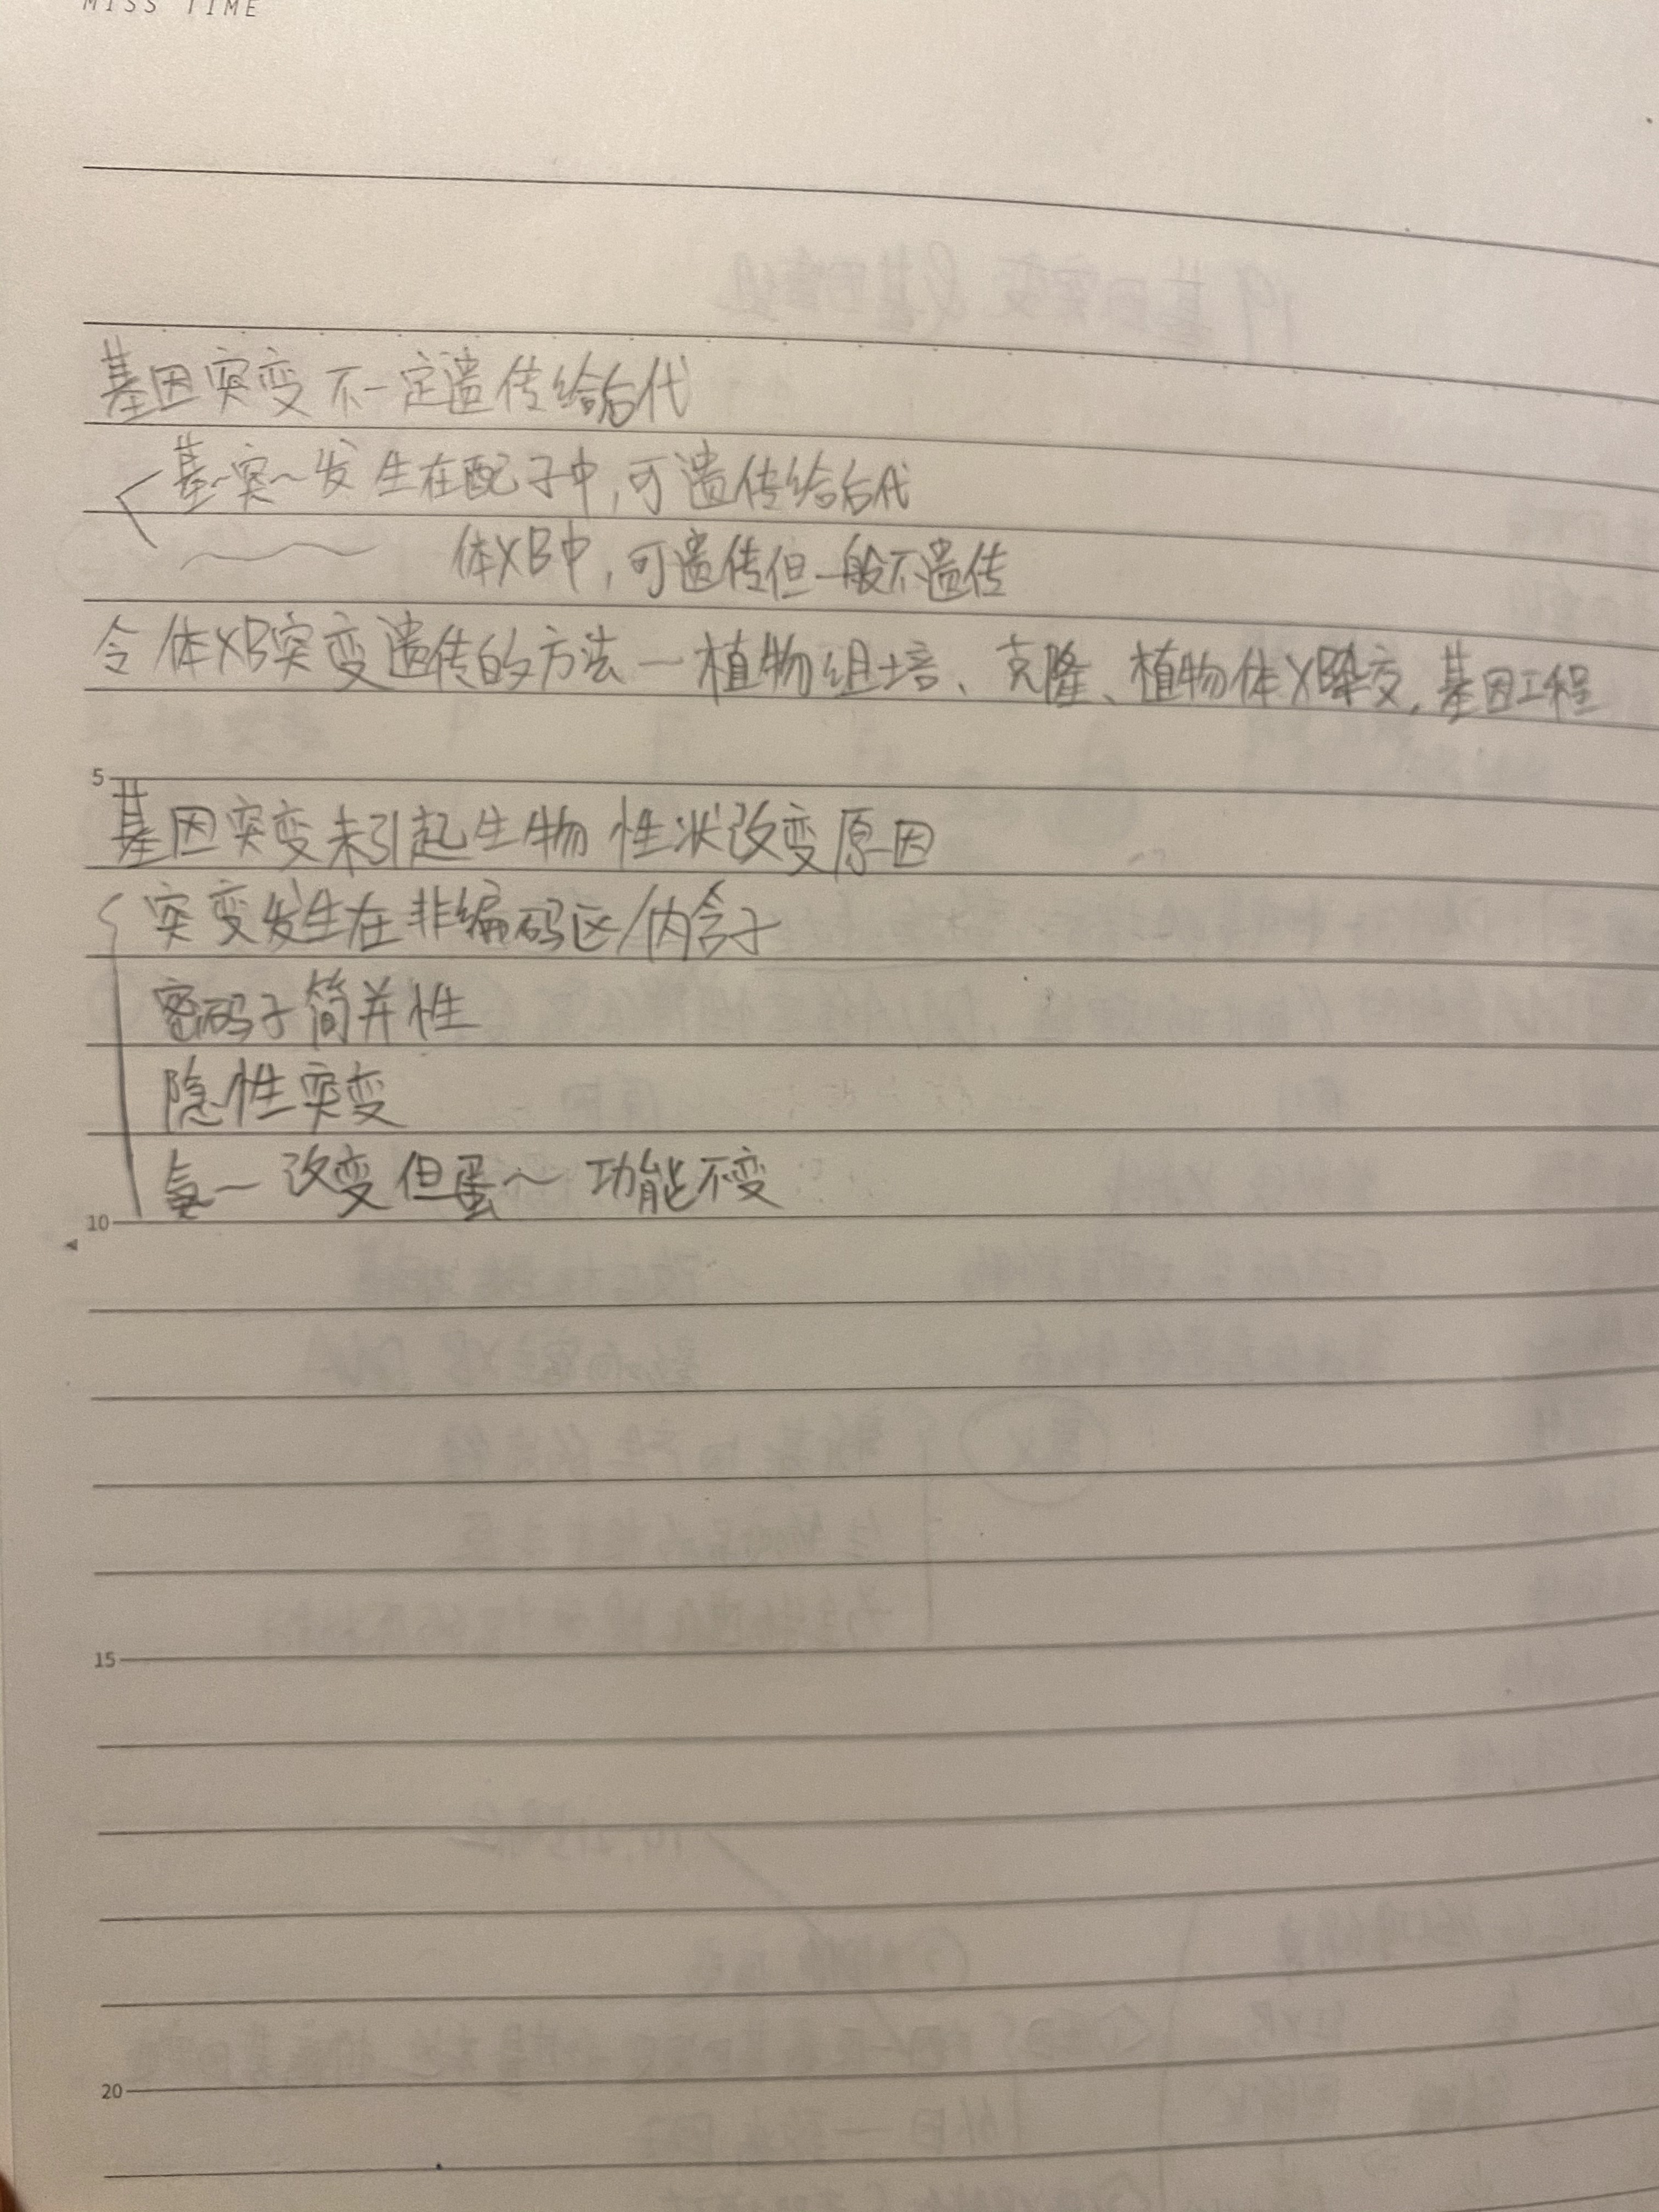 MISS TIME
基因突变不一定遗传给后代
基~突~发生在配子中,可遗传给后代
体XB中,可遗传但一般不遗传
令体XB突变遗传的方法—植物组培、克隆、植物体X杂交,基因工程
5
基因突变未引起生物性状改变原因
突变发生在非编码区/内含子
密码子简并性
隐性突变
10
氨~改变但蛋~功能不变
15
20